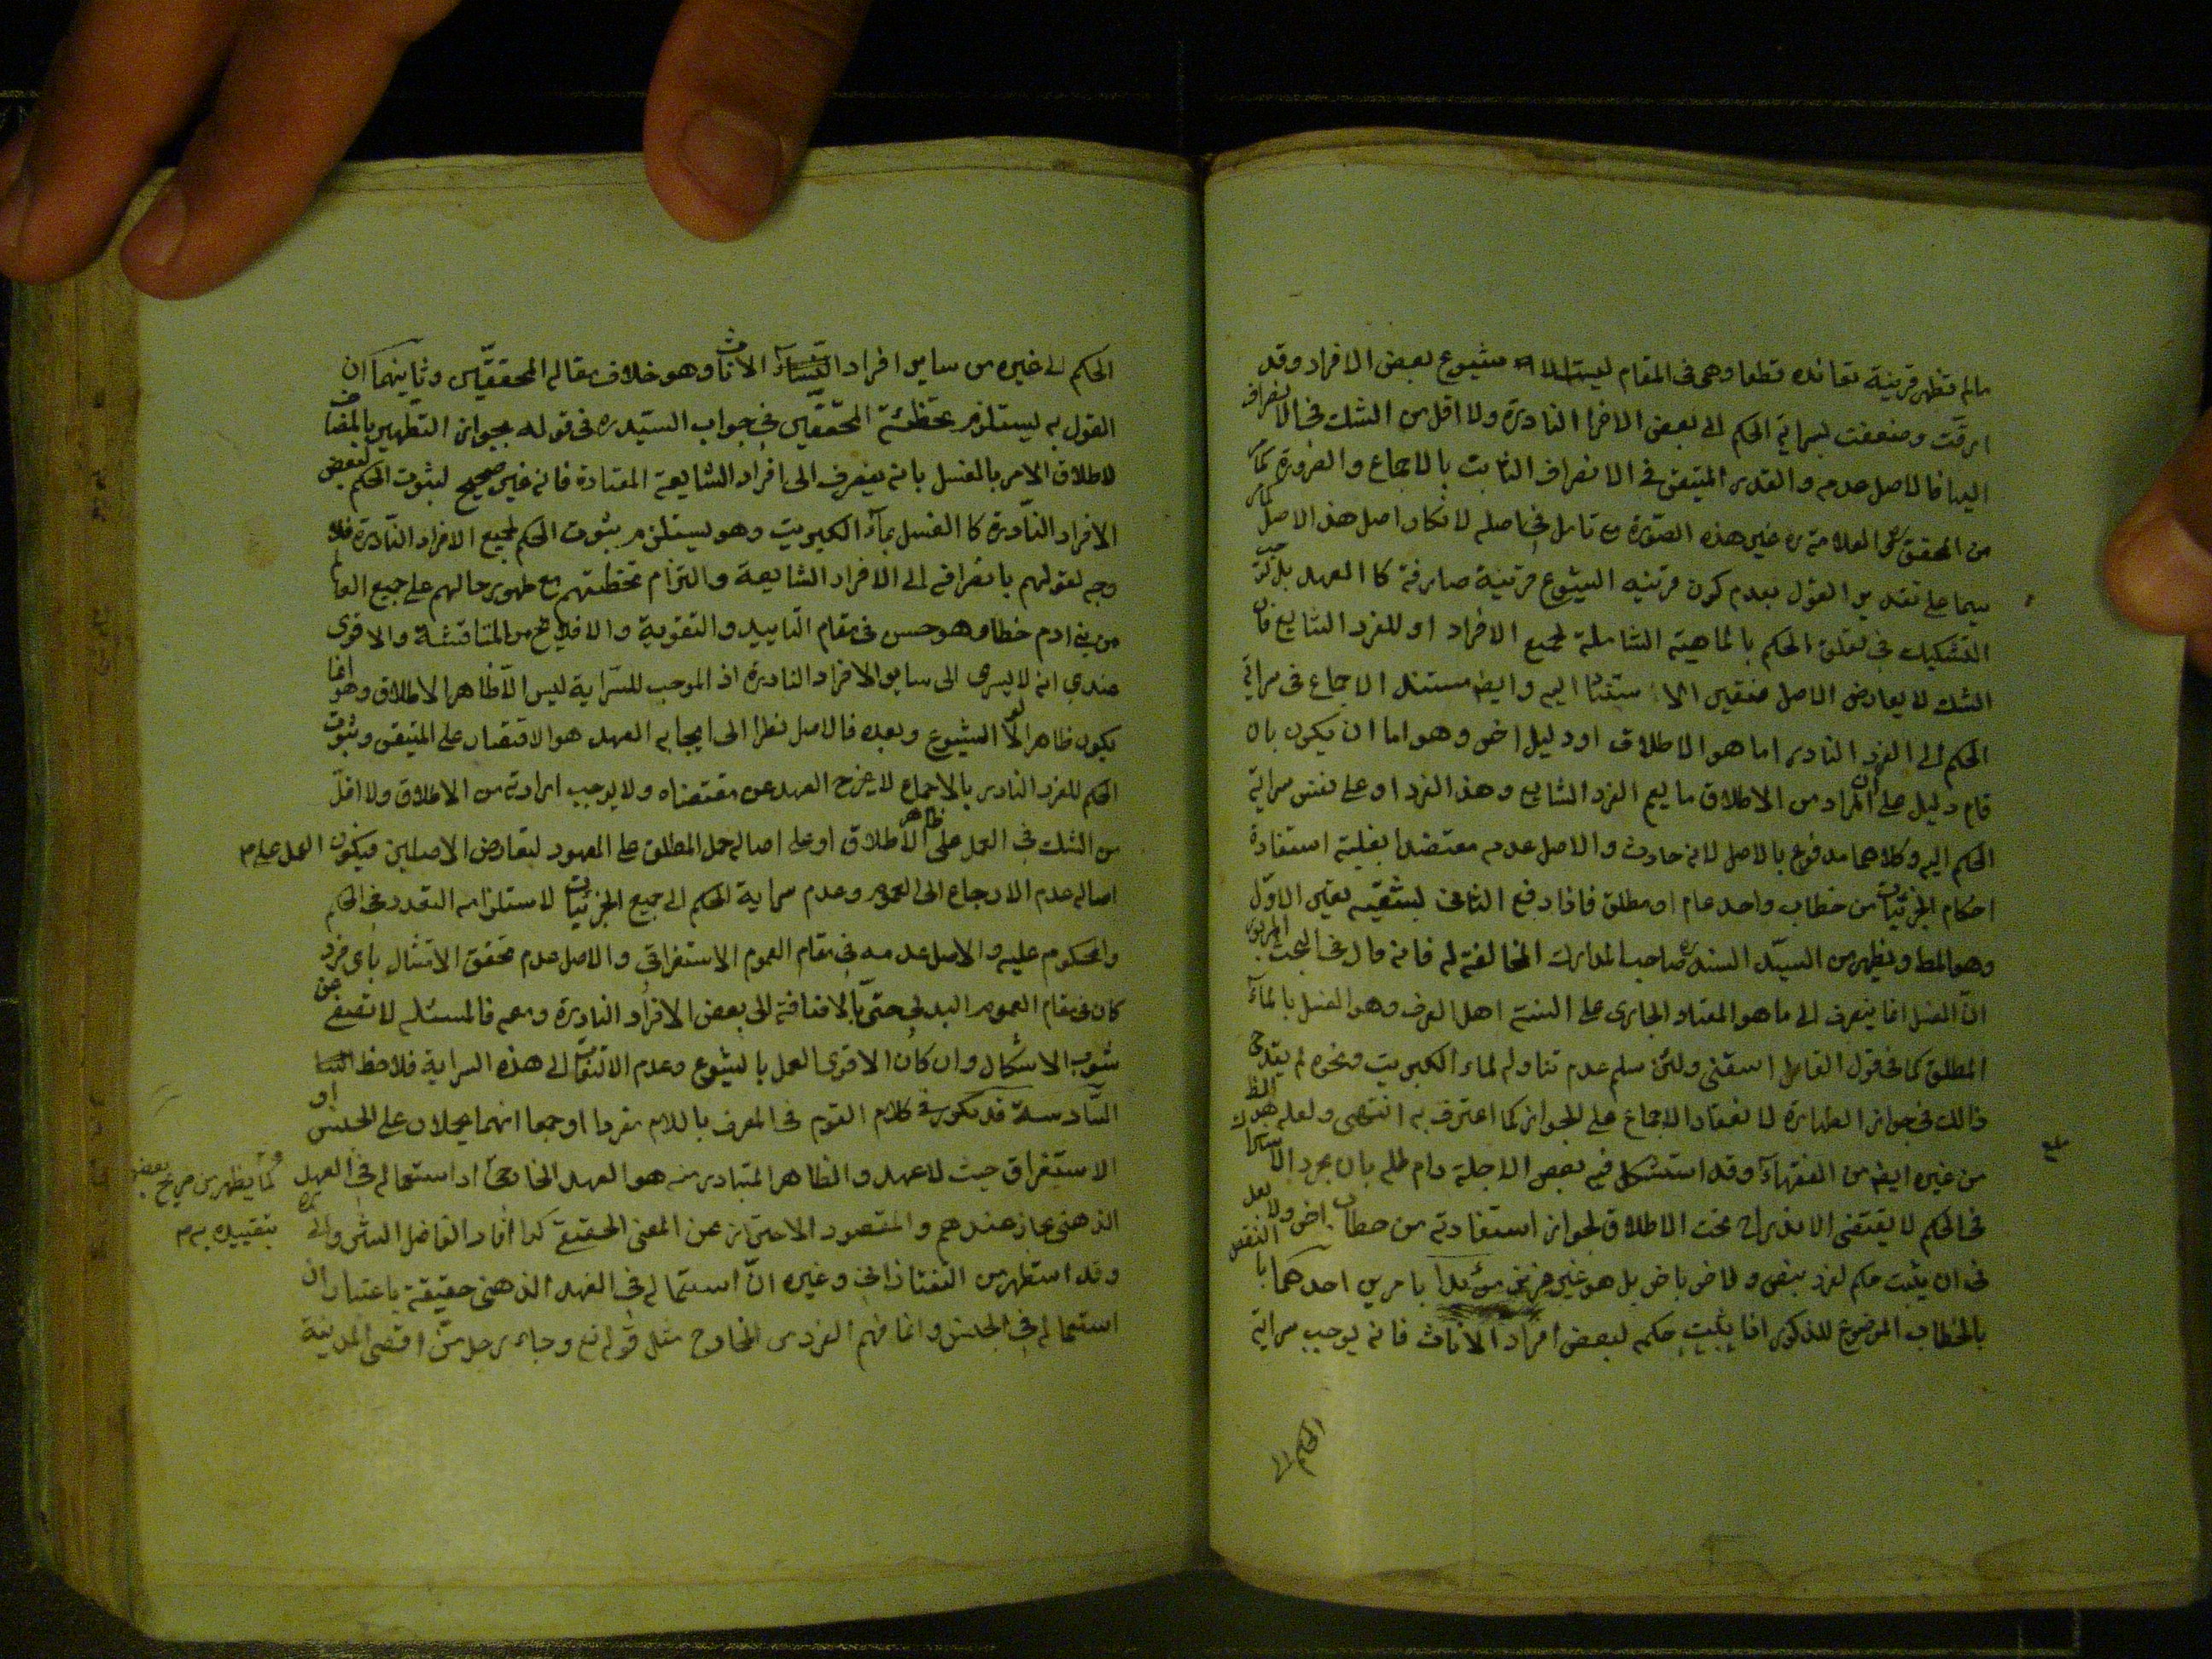 مالم تظهر قرينة تعانده قطعا وهى فى المقام ليست الا شيوع بعض الافراد وقد
ارقت وضعفت بسراية الحكم الى بعض الافراد النادرة ولا اقل من الشك فى الانصراف
اليها فالاصل عدمه والقدر المتيقن فى الانصراف الثابت بالاجماع والضرورة كما مر
من المحقق العلامة ره غير هذه الصورة مع تامل فى اصله لانكار اصل هذا الاصل كما مر
سيما على تقدير القول بعدم كون قرينية الشيوع قرينة صارفة كا العهد بل
التشكيك فى تعلق الحكم بالماهية الشاملة لجميع الافراد او للفرد الشايع فان
الشك لا يعارض الاصل فتعين الا ستناد اليه وايضا مستند الاجماع فى سراية
الحكم الى الفرد النادر اما هو الاطلاق او دليل اخر وهو اما ان يكون بان
قام دليل على ان المراد من الاطلاق ما يعم الفرد الشايع وهذا الفرد او على نفس سراية
الحكم اليه وكلاهما مدفوع بالاصل لانه حادث والاصل عدمه معتضدا بغلبة استفادة
احكام الجزئيات من خطاب واحد عام او مطلق فاذا دفع الثانى بشقيه تعين الاول
وهو المط ويظهر من السيد السند ره صاحب المدارك المخالفة له فانه قال فى البحث المزبور
ان الغسل انما ينصرف الى ما هو المعتاد الجارى على السنة اهل العرف وهو الغسل بالمآء
المطلق كما فى قول القايل اسقنى ولئن سلم عدم تناوله لماء الكبريت ونحوه لم يقدح
ذالك فى جواز الطهارة لانعقاد الاجماع على الجواز كما اعترف به انتهى ولعله الظ
من غيره ايضا من الفقهآء وقد استشكل فيه بعض الاجلة دام ظله بان مجرد الاشتراك
فى الحكم لا يقتضى الاندراج تحت الاطلاق لجواز استفادته من خطاب اخر ولا بعد
فى ان يثبت حكم لفرد بنص ولاخر باخر بل هو غير عزيز مؤيدا بامرين احدهما النقض
بالخطاب الموضوع للذكور اذا يثبت حكمه لبعض افراد الاناث فانه يوجب سراية
الحكم الى
الحكم الى غيره من ساير افراد الاناث وهو خلاف مقالة المحققين وثانيهما ان
القول به يستلزم تخطئة المحققين فى جواب السيد ره فى قوله بجواز التطهير بالمضاف
لاطلاق الامر بالغسل بانه ينصرف الى افراد الشايعة المعتادة فانه غير صحيح لثبوت الحكم لبعض
الافراد النادرة كا الغسل بمآء الكبريت وهو يستلزم ثبوت الحكم لجميع الافراد النادرة فلا
وجه لقولهم بانصرافه الى الافراد الشايعة والتزام تخطئتهم مع ظهور حالهم على جميع العوام
من بنى ادم خطا وهو حسن فى مقام التاييد والتقوية والا فلا يخ من المناقشة والاقوى
عندي انه لا يسرى الى ساير الافراد النادرة اذ الموجب للسراية ليس الا ظاهر الاطلاق وهو انما
يكون ظاهرا لو لا الشيوع وبعده فالاصل نظرا الى ايجابه العهد هو الاقتصار على المتيقن وثبوت
الحكم للفرد النادر بالاجماع لا يخرج العهد عن مقتضاه ولا يوجب ارادته من الاطلاق ولا اقل
من الشك فى العمل على ظاهر الاطلاق او على اصالة حمل المطلق على المعهود لتعارض الاصلين فيكون العمل على
اصالة عدم الارجاع الى العموم وعدم سراية الحكم الى جميع الجزئيات لاستلزامه التعدد فى الحكم
والمحكوم عليه والاصل عدمه فى مقام العموم الاستغراقى والاصل عدم تحقق الامتثال باى فرد
كان فى مقام العموم البدلى حتى بالاضافة الى بعض الافراد النادرة ومعه فالمسئلة لا تصفى عن
شوب الاشكال وان كان الاقوى العمل بالشيوع وعدم الالتفات الى هذه السراية فلاحظ
السادسة قد تكرر فى كلام القوم فى المعرف باللام مفردا او جمعا انهما يحملان على الجنس او
الاستغراق حيث لا عهد والظاهر المتبادر منه هو العهد الخارجى اذ استعماله فى العهد
كما يظهر من صريح بعض
بتقييده به
الذهنى مجاز عندهم والمقصود الاحتراز عن المعنى الحقيقى كذا افاد الفاضل الشروانى ره
وقد استظهر من التفتازانى وغيره ان استعماله فى العهد الذهنى حقيقة باعتبار ان
استعماله فى الجنس وانما فهم الفرد من الخارج مثل قوله تع وجاء رجل من اقصى المدينة